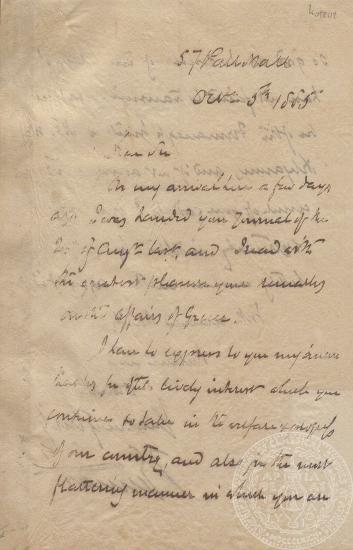 57 Pall Mall
Oct. 5th 1865
Dear Sir
On my arrival here a few days
ago I was handed your Journal of the
of Augt last, and I read with
the greatest pleasure your remarks
on the affairs of Greece.
I have to express to you my sincere
thanks for the lively interest which you
continue to take in the welfare & progress
of our country, and also for the most
flattering manner in which you are